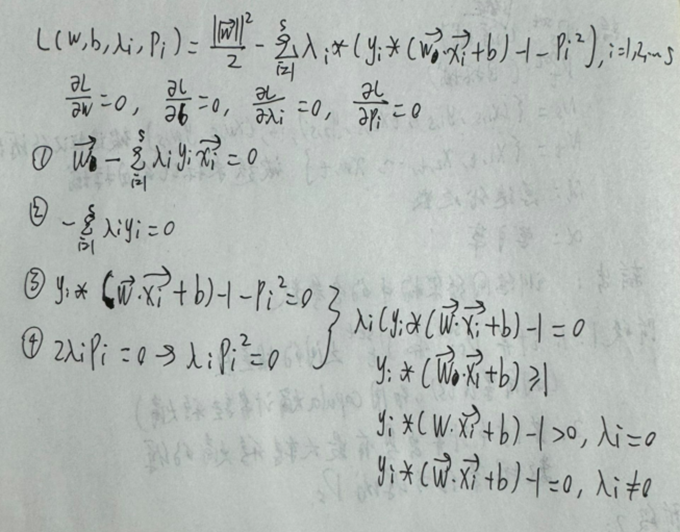 L(w,b,λi,Pi) = ||w⃗||²/2 - Σ_{i=1}^{s} λi * (yi * (w⃗·xi⃗+b) -1 - Pi²), i=1,2,…s
∂L/∂w = 0, ∂L/∂b = 0, ∂L/∂λi = 0, ∂L/∂Pi = 0
① w⃗ - Σ_{i=1}^{s} λi yi xi⃗ = 0
② - Σ_{i=1}^{s} λi yi = 0
③ yi * (w⃗·xi⃗ + b) -1 - Pi² = 0
④ 2λiPi = 0 → λiPi² = 0
} λi(yi * (w⃗·xi⃗+b) -1 = 0
yi * (w⃗·xi⃗+b) ≥ 1
yi * (w·xi⃗+b) -1 > 0, λi = 0
yi * (w⃗·xi⃗+b) -1 = 0, λi ≠ 0